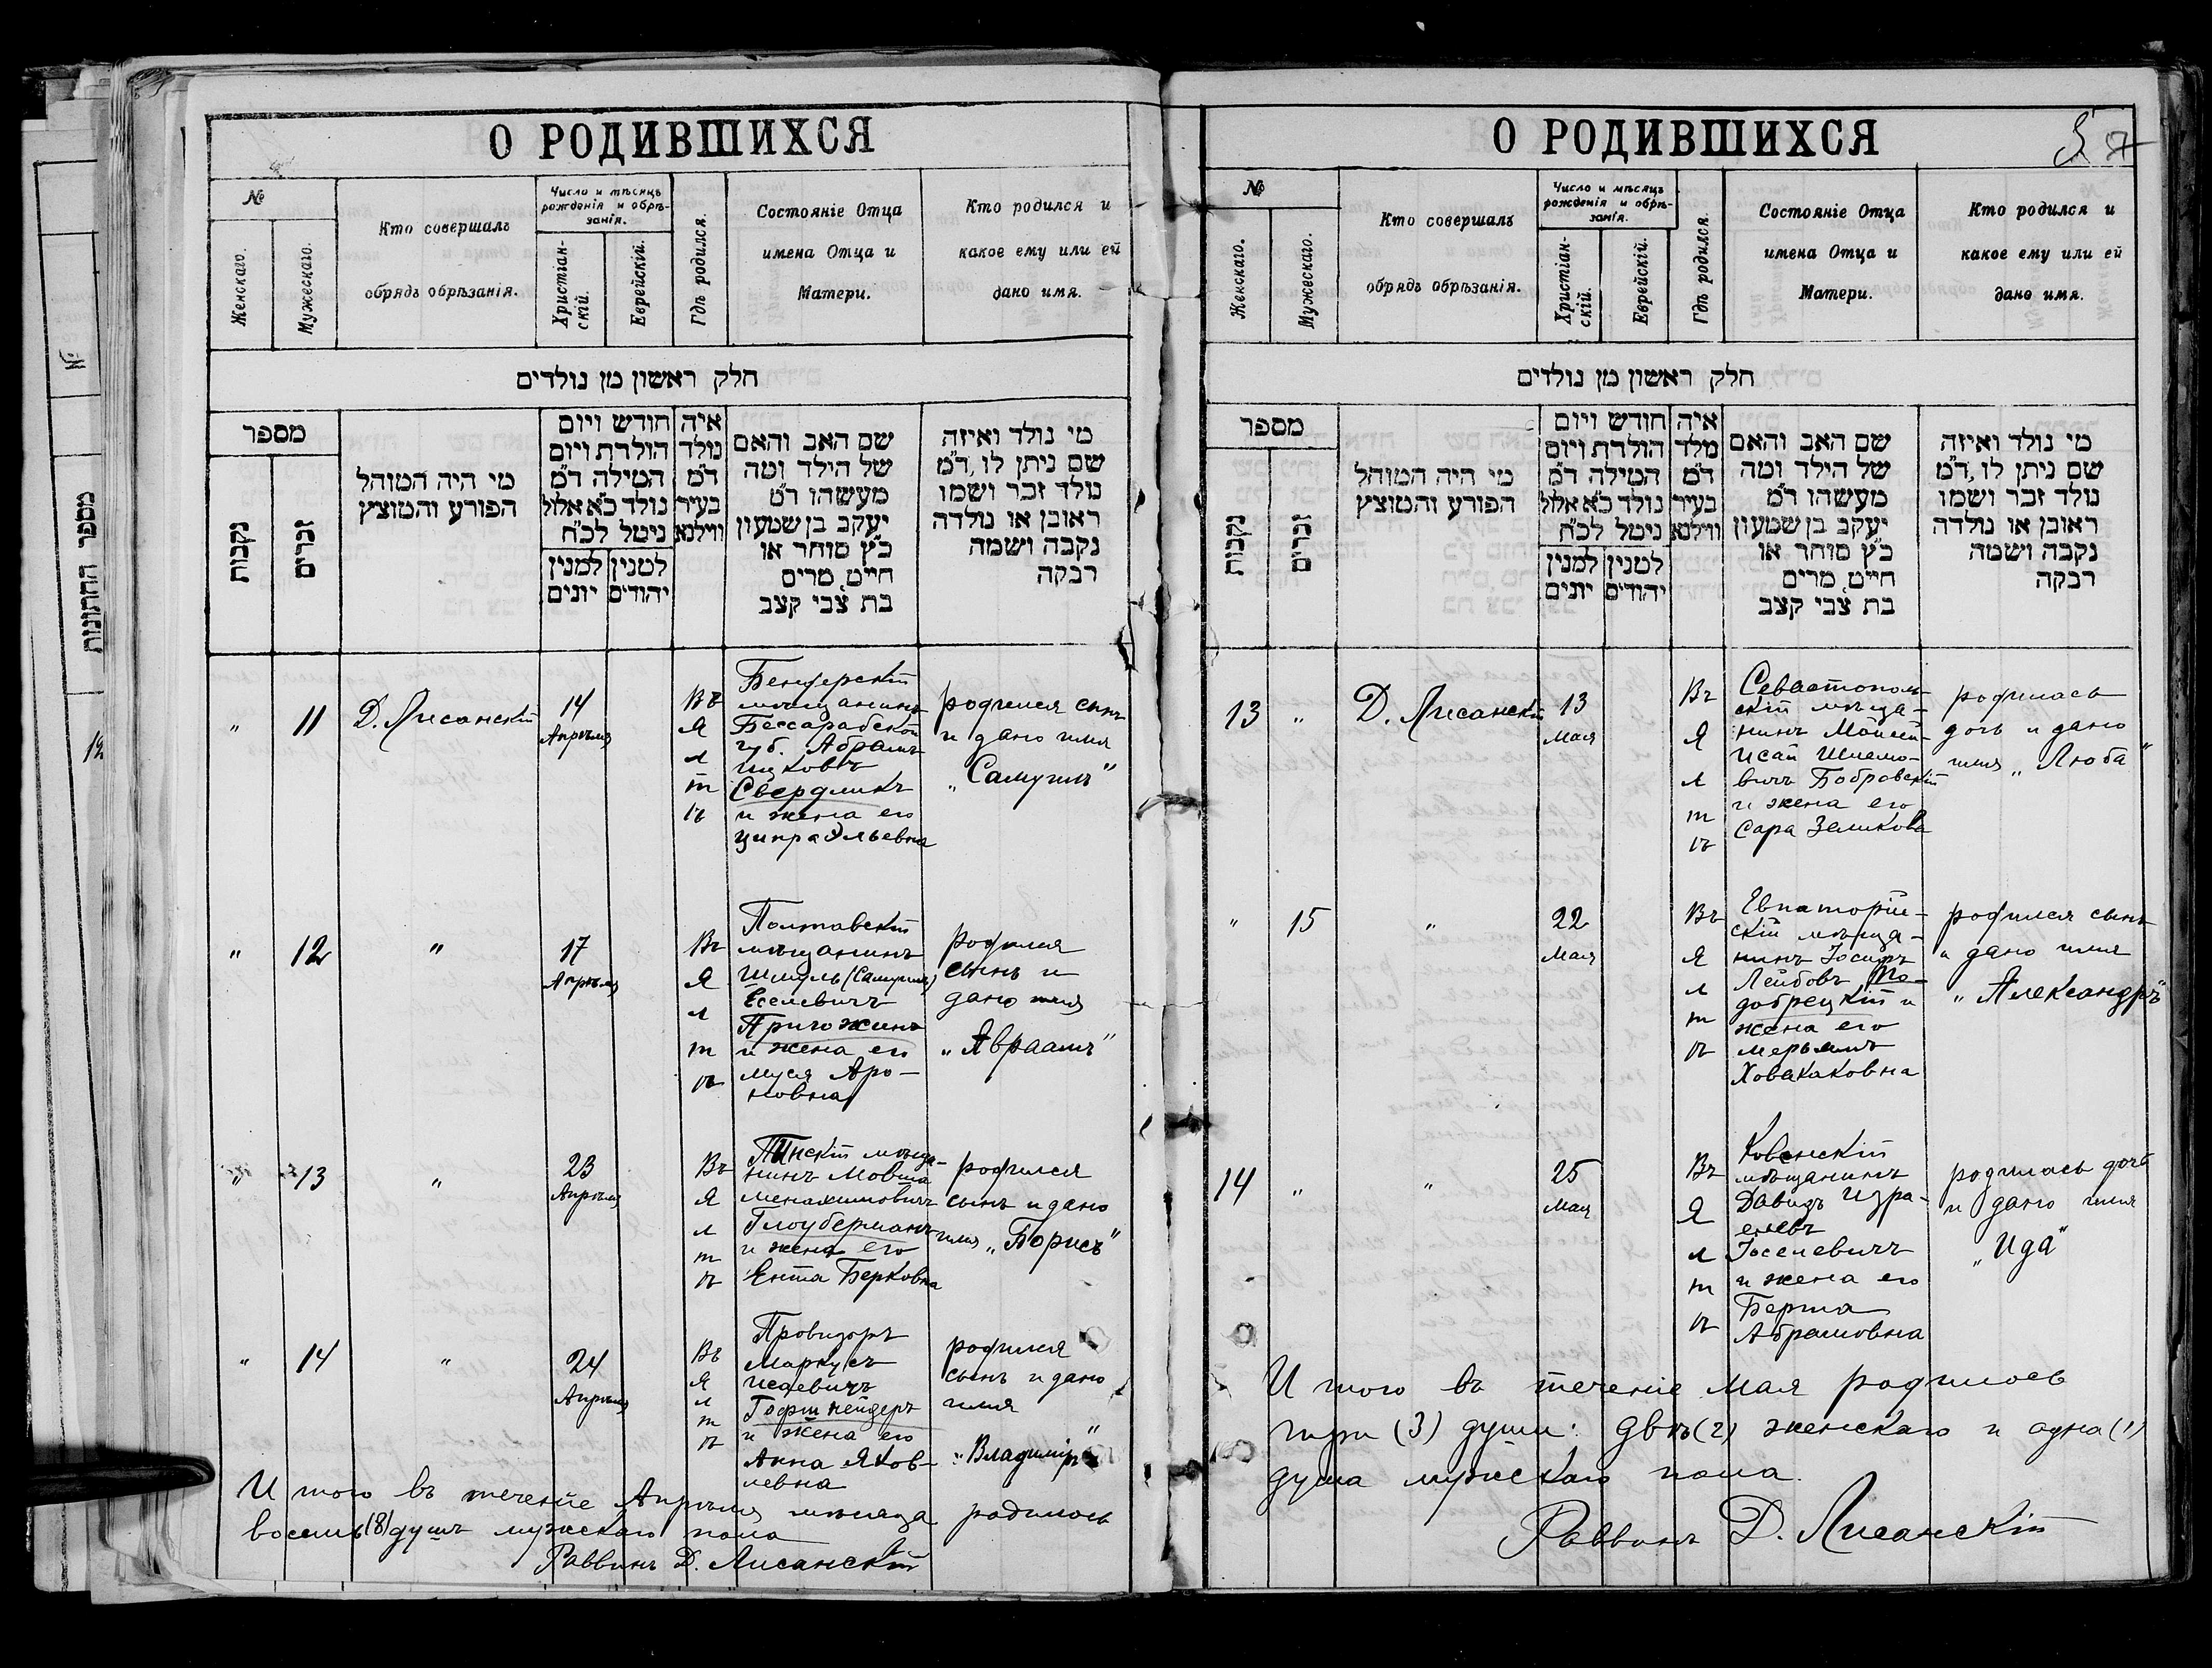 О РОДИВШИХСЯ
№
Женскаго.
Мужескаго.
Кто совершалъ
обрядъ обрѣзанія.
Число и мѣсяцъ
рожденія и обрѣ-
занія.
Христіан-
скій.
Еврейскій.
Гдѣ родился.
Состояніе Отца
имена Отца и
Матери.
Кто родился и
какое ему или ей
дано имя.
חלק ראשון מן נולדים
מספר
נקבות
זכרים
מי היה המוהל
הפורע והמוצץ
איה חודש ויום
נולד הולדת ויום
ד״מ המילה ד״מ
בעיר נולד כ״א אלול
ווילנא ניטל לכ״ח
למנין יונים
למנין יהודים
שם האב והאם
של הילד ומה
מעשהו ד״מ
יעקב בן שמעון
כ״ץ סוחר או
חייט, מרים
בת צבי קצב
מי נולד ואיזה
שם ניתן לו, ד״מ
נולד זכר ושמו
ראובן או נולדה
נקבה ושמה
רבקה
" 11 Д. Лисанскій 14 Апрѣля
Въ Ялтѣ
Бендерскій
мѣщанинъ
Бессарабской
губ. Абрамъ
Ицковъ
Свердликъ
и жена его
Ципра Эльевна
родился сынъ
и дано имя
„Самуилъ"
" 12 " 17 Апрѣля
Въ Ялтѣ
Полтавскій
мѣщанинъ
Шмуль (Самуилъ)
Еселевичъ
Пригожинъ
и жена его
Муся Аро-
новна
родился
сынъ и
дано имя
„Авраамъ"
" 13 " 23 Апрѣля
Въ Ялтѣ
Пинскій мѣща-
нинъ Мовша
Менахимовичъ
Глоуберманъ
и жена его
Ента Берковна
родился
сынъ и дано
имя „Борисъ"
" 14 " 24 Апрѣля
Въ Ялтѣ
Провизоръ
Маркусъ
Исаевичъ
Гофшнейдеръ
и жена его
Анна Яков-
левна
родился
сынъ и дано
имя
„Владиміръ"
Итого въ теченіе Апрѣля мѣсяца родилось
восемь (8) душъ мужскаго пола
Раввинъ Д. Лисанскій
О РОДИВШИХСЯ
№
Женскаго.
Мужескаго.
Кто совершалъ
обрядъ обрѣзанія.
Число и мѣсяцъ
рожденія и обрѣ-
занія.
Христіан-
скій.
Еврейскій.
Гдѣ родился.
Состояніе Отца
имена Отца и
Матери.
Кто родился и
какое ему или ей
дано имя.
חלק ראשון מן נולדים
מספר
נקבות
זכרים
מי היה המוהל
הפורע והמוצץ
איה חודש ויום
מלד הולדת ויום
ד״מ המילה ד״מ
בעיר נולד כ״א אלול
ווילנא ניטל לכ״ח
למנין יונים
למנין יהודים
שם האב והאם
של הילד ומה
מעשהו ד״מ
יעקב בן שמעון
כ״ץ סוחר או
חייט, מרים
בת צבי קצב
מי נולד ואיזה
שם ניתן לו, ד״מ
נולד זכר ושמו
ראובן או נולדה
נקבה ושמה
רבקה
13 " Д. Лисанскій 13 Мая
Въ Ялтѣ
Севастополь-
скій мѣща-
нинъ
Исай Шлемо-
вичъ Бобровскій
и жена его
Сара Зеликова
родилась
дочь и дано
имя „Люба"
" 15 " 22 Мая
Въ Ялтѣ
Евпаторій-
скій мѣща-
нинъ Іосифъ
Лейбовъ
и
жена его
Мерьямъ
родился сынъ
и дано имя
„Александръ"
14 " " 25 Мая
Въ Ялтѣ
Ковенскій
мѣщанинъ
Давидъ Изра-
елевъ
Іоселевичъ
и жена его
Берта
Абрамовна
родилась дочь
и дано имя
„Ида"
Итого въ теченіе Мая родилось
три (3) души: двѣ (2) женскаго и одна (1)
душа мужскаго пола.
Раввинъ Д. Лисанскій
מספר החתונות